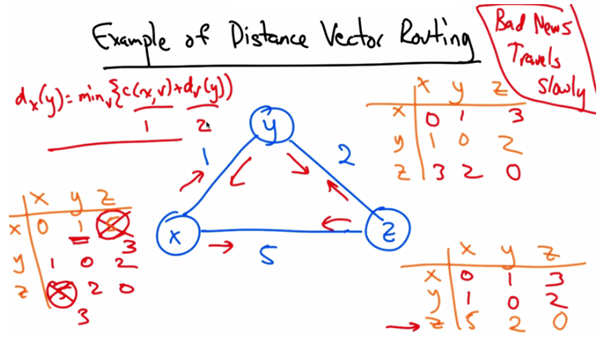 Example of Distance Vector Routing
Bad News
Travels
Slowly
dx(y) = minv{c(x,v)+dv(y)}
1 2
x y z
x 0 1 3
y 1 0 2
z 3 2 0
y
1
2
x
z
5
x y z
x 0 1 5
3
y 1 0 2
z 5 2 0
3
x y z
x 0 1 3
y 1 0 2
z 5 2 0